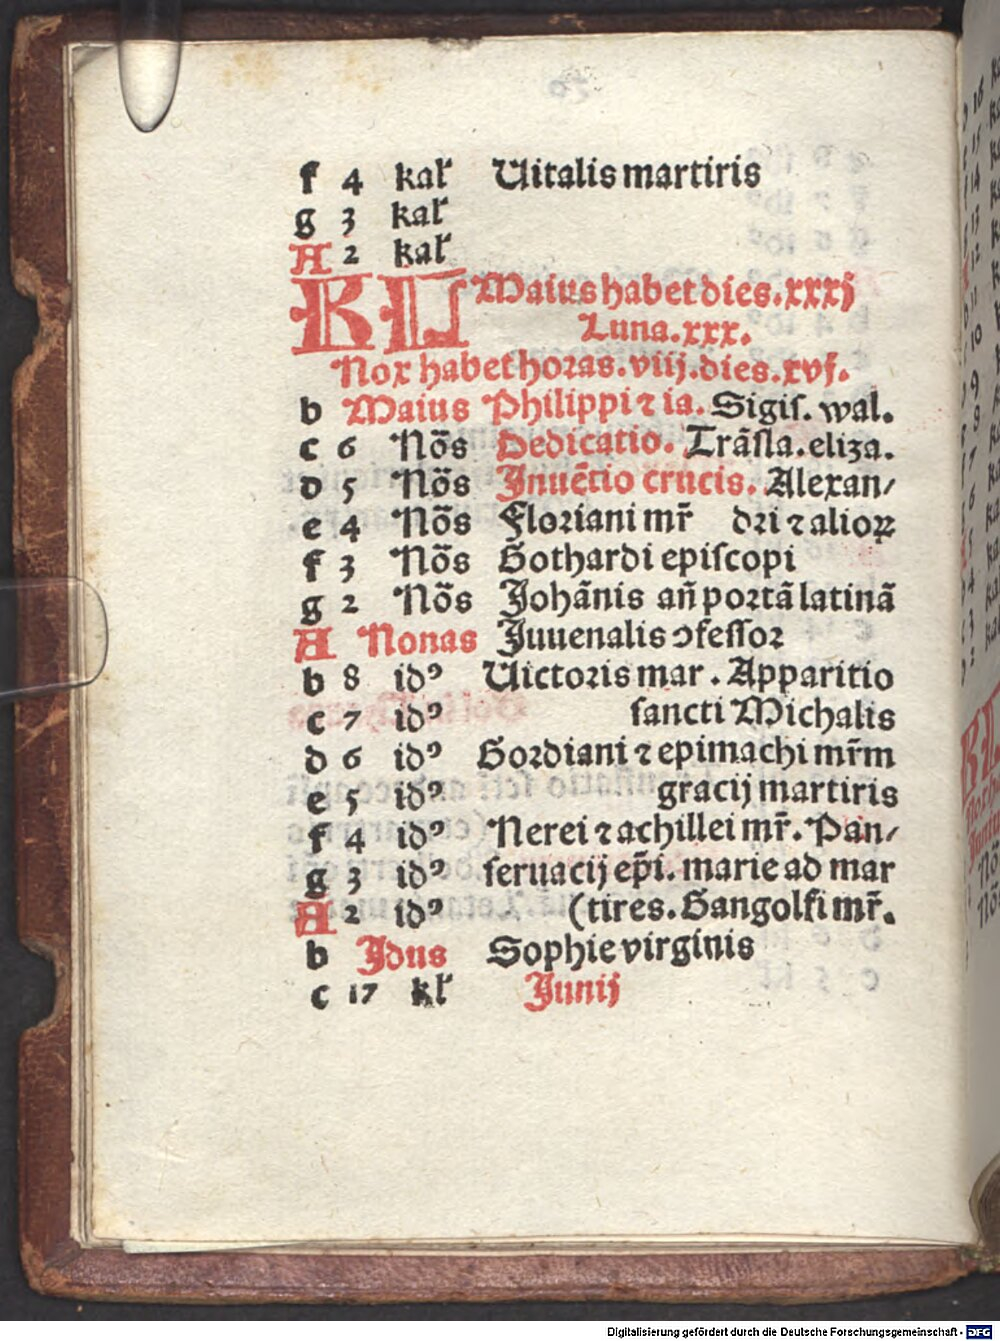 f 4 kal̕ Uitalis martiris
g 3 kal̕
A 2 kal̕
KL Maius habet dies.xxxj
Luna.xxx.
Nox habet horas.viij.dies.xvj.
b Maius Philippi ⁊ ia. Sigiſ. wal.
c 6 Nōs Dedicatio. Trāſla.eliza.
d 5 Nōs Inuētio crucis. Alexan⸗
e 4 Nōs Floriani mr̄ dri ⁊ alioꝝ
f 3 Nōs Gothardi epiſcopi
g 2 Nōs Johānis an̄ portā latinā
A Nonas Juuenalis ↄfeſſor
b 8 idꝰ Uictoris mar. Apparitio
c 7 idꝰ ſancti Michalis
d 6 idꝰ Gordiani ⁊ epimachi mr̄m
e 5 idꝰ gracij martiris
f 4 idꝰ Nerei ⁊ achillei mr̄. Pan⸗
g 3 idꝰ ſeruacij ep̄i. marie ad mar
A 2 idꝰ (tires. Gangolfi mr̄.
b Idus Sophie virginis
c 17 kl̕ Junij
Digitalisierung gefördert durch die Deutsche Forschungsgemeinschaft - DFG